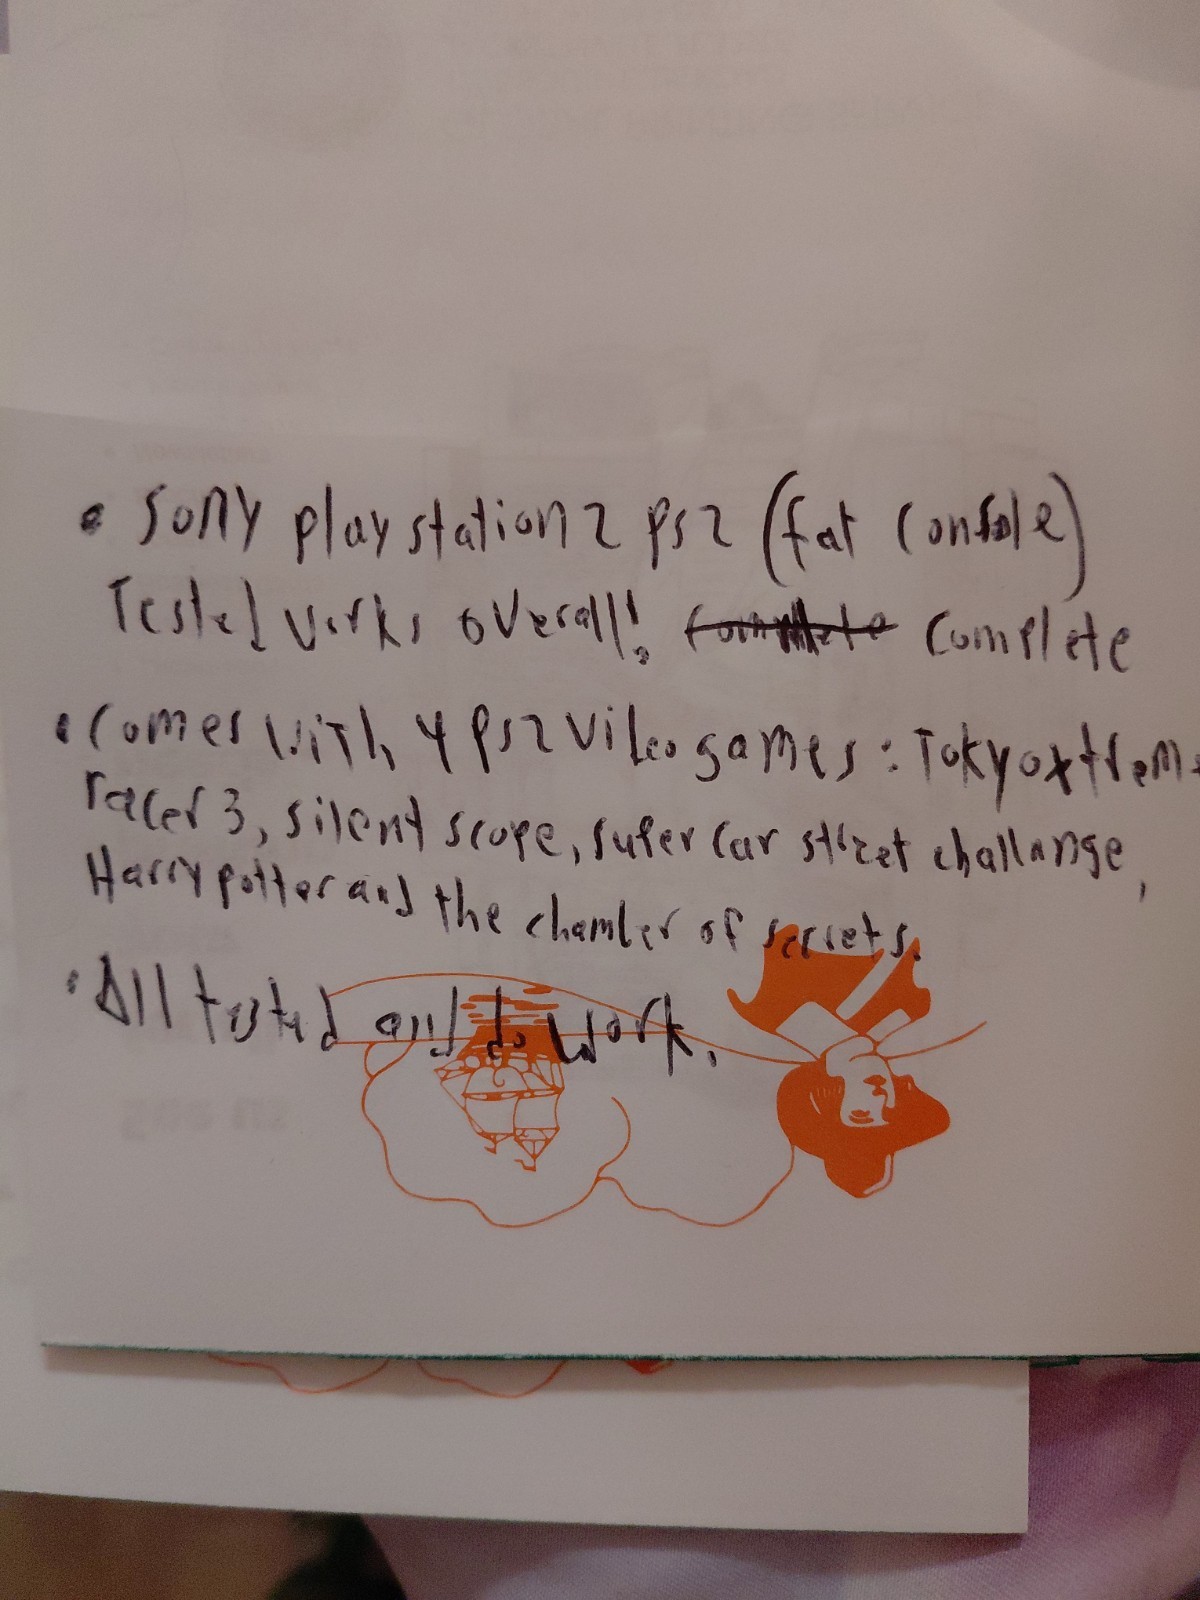 • Sony playstation 2 ps2 (fat console)
Tested works overall! complete
• comes with 4 ps2 video games : Tokyo xtreme
racer 3, silent scope, super car street challange,
Harry potter and the chamber of secrets.
• All tested and do work.